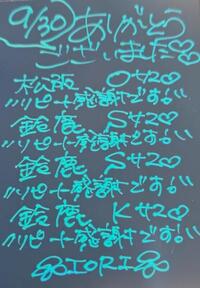 9/30 ありがとう
ございました♡
松阪 Oサン♡
リピート感謝です!!
鈴鹿 Sサン♡
リピート感謝です!!
鈴鹿 Sサン♡
リピート感謝です!!
鈴鹿 Kサン♡
リピート感謝です!!
IORI